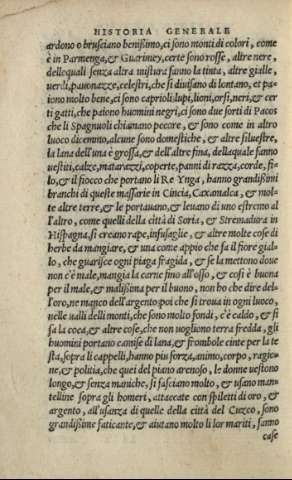 HISTORIA GENERALE
ardono o brusciano benissimo, ci sono monti di colori, come
è in Parmenga, & Guarimey, certe sono rosse, altre nere,
delle quali senza altra mistura fanno la tinta, altre gialle,
verdi, pavonazze, celestri, che si divisano di lontano, et pa-
iono molto bene, ci sono caprioli: lupi, lioni, orsi, neri, & cer
ti gatti, che paiono huomini negri, ci sono due sorti di Pacos
che li Spagnuoli chiamano pecore, & sono come in altro
luoco dicemmo, alcune sono domestiche, & altre silvestre,
la lana dell'una è grossa, & dell'altre fina, della quale fanno
vestiti, calze, matarazzi, coperte, panni di razza, corde, fi-
lo, & il fiocco che portano li Re Ynga, hanno grandissimi
branchi di queste massarie in Cincia, Caxamalca, & mol-
te altre terre, & le portavano, & levano di uno estremo al
l'altro, come quelli della città di Soria, & Stremadura in
Hispagna, si creano rape, infusaglie, & altre molte cose di
herbe da mangiare, & una come appio che fa il fiore gial-
lo, che guarisce ogni piaga fragida, & se la mettono dove
non c'è male, mangia la carne fino all'osso, & cosi è buona
per il male, & malissima per il buono, non ho che dire del-
l'oro, ne manco dell'argento: poi che si trova in ogni luoco,
nelle valli delli monti, che sono molto fondi, c'è caldo, & si
fa la coca, & altre cose, che non vogliono terra fredda, gli
huomini portano camise di lana, & frombole cinte per la te
sta, sopra li cappelli, hanno piu forza, animo, corpo, ragio-
ne, & politia, che quei del piano arenoso, le donne vestono
longo, & senza maniche, si fasciano molto, & usano man-
telline sopra gli homeri, attaccate con spiletti di oro, &
argento, all'usanza di quelle della città del Cuzco, sono
grandissime faticante, & aiutano molto li lor mariti, fanno
case